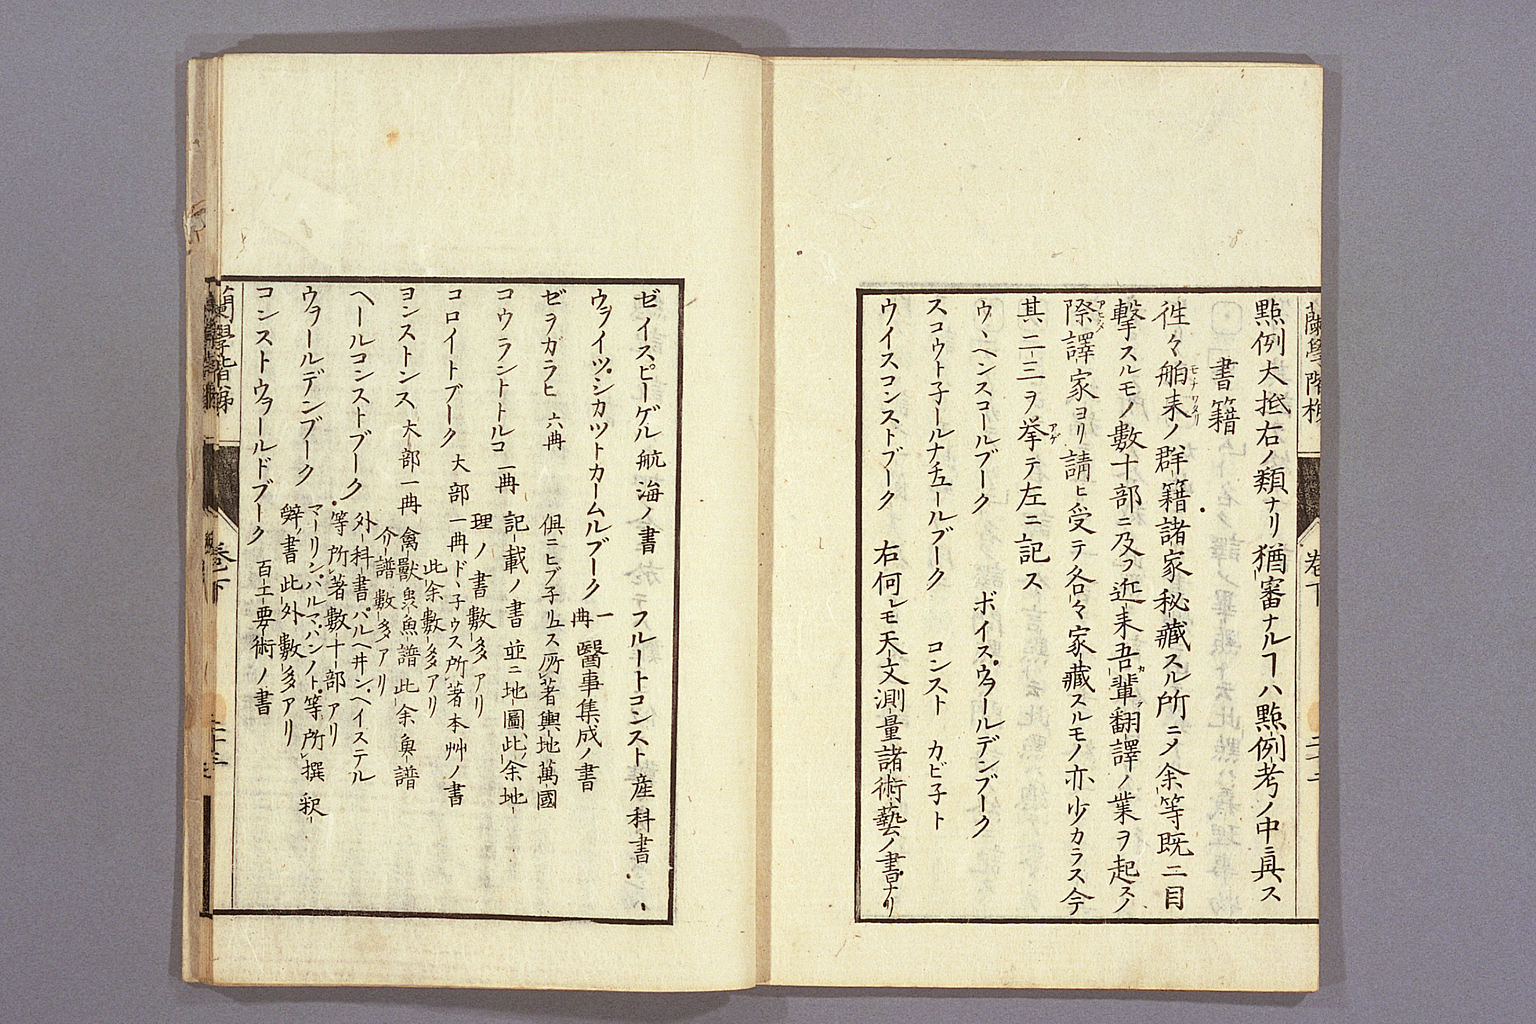 蘭學階梯 卷下 二十二
點例大抵右ノ類ナリ猶審ナルヿハ點例考ノ中ニ具ス
書籍
徃々舶来ノ群籍諸家秘藏スル所ニメ余等既ニ目
モチワタリ
撃スルモノ數十部ニ及フ近来吾輩翻譯ノ業ヲ起スノ
際譯家ヨリ請ヒ受テ各々家藏スルモノ亦少カラス今
アヒダ
其二三ヲ挙テ左ニ記ス
アゲ
ウヽヘンスコールブーク ボイスウヲールデンブーク
スコウト子ールナチュールブーク コンスト カビ子ト
ウイスコンストブーク 右何レモ天文測量諸術藝ノ書ナリ
ゼイスピーゲル航海ノ書 フルートコンスト産科書
ウヲイツシカツトカームルブーク 一冊 醫事集成ノ書
ゼヲガラヒ 六冊 倶ニヒブ子リユス所著輿地萬國
コウラントトルコ 一冊 記載ノ書並ニ地圖此余地
理ノ書數多アリ
コロイトブーク 大部一冊 ドヽ子ウス所著本艸ノ書
此余數多アリ
ヨンストンス 大部一冊 禽獸虫魚譜此余魚譜
介譜數多アリ
ヘールコンストブーク 外科書パルヘ井ンヘイステル
等所著數十部アリ
ウヲールデンブーク マーリンハルマハンノト等所撰釈
辞ノ書此外數多アリ
コンストウヲールドブーク 百工要術ノ書
蘭學階梯 卷下 二十三